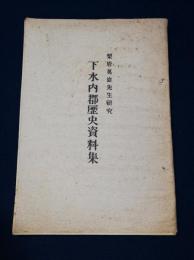 栗岩英治先生研究
下水内郡歴史資料集